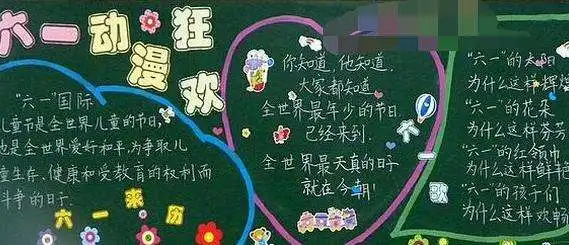 六一动漫狂欢
"六一"国际
儿童节是全世界儿童的节日,
也是全世界爱好和平,为争取儿
童生存、健康和受教育的权利而
斗争的日子.
六一来历
你知道,他知道,
大家都知道
全世界最年少的节日
已经来到.
全世界最天真的日子
就在今朝!
六一歌
"六一"的太阳
为什么这样辉煌
"六一"的花朵
为什么这样芬芳
"六一"的红领巾
为什么这样鲜艳
"六一"的孩子们
为什么这样欢畅